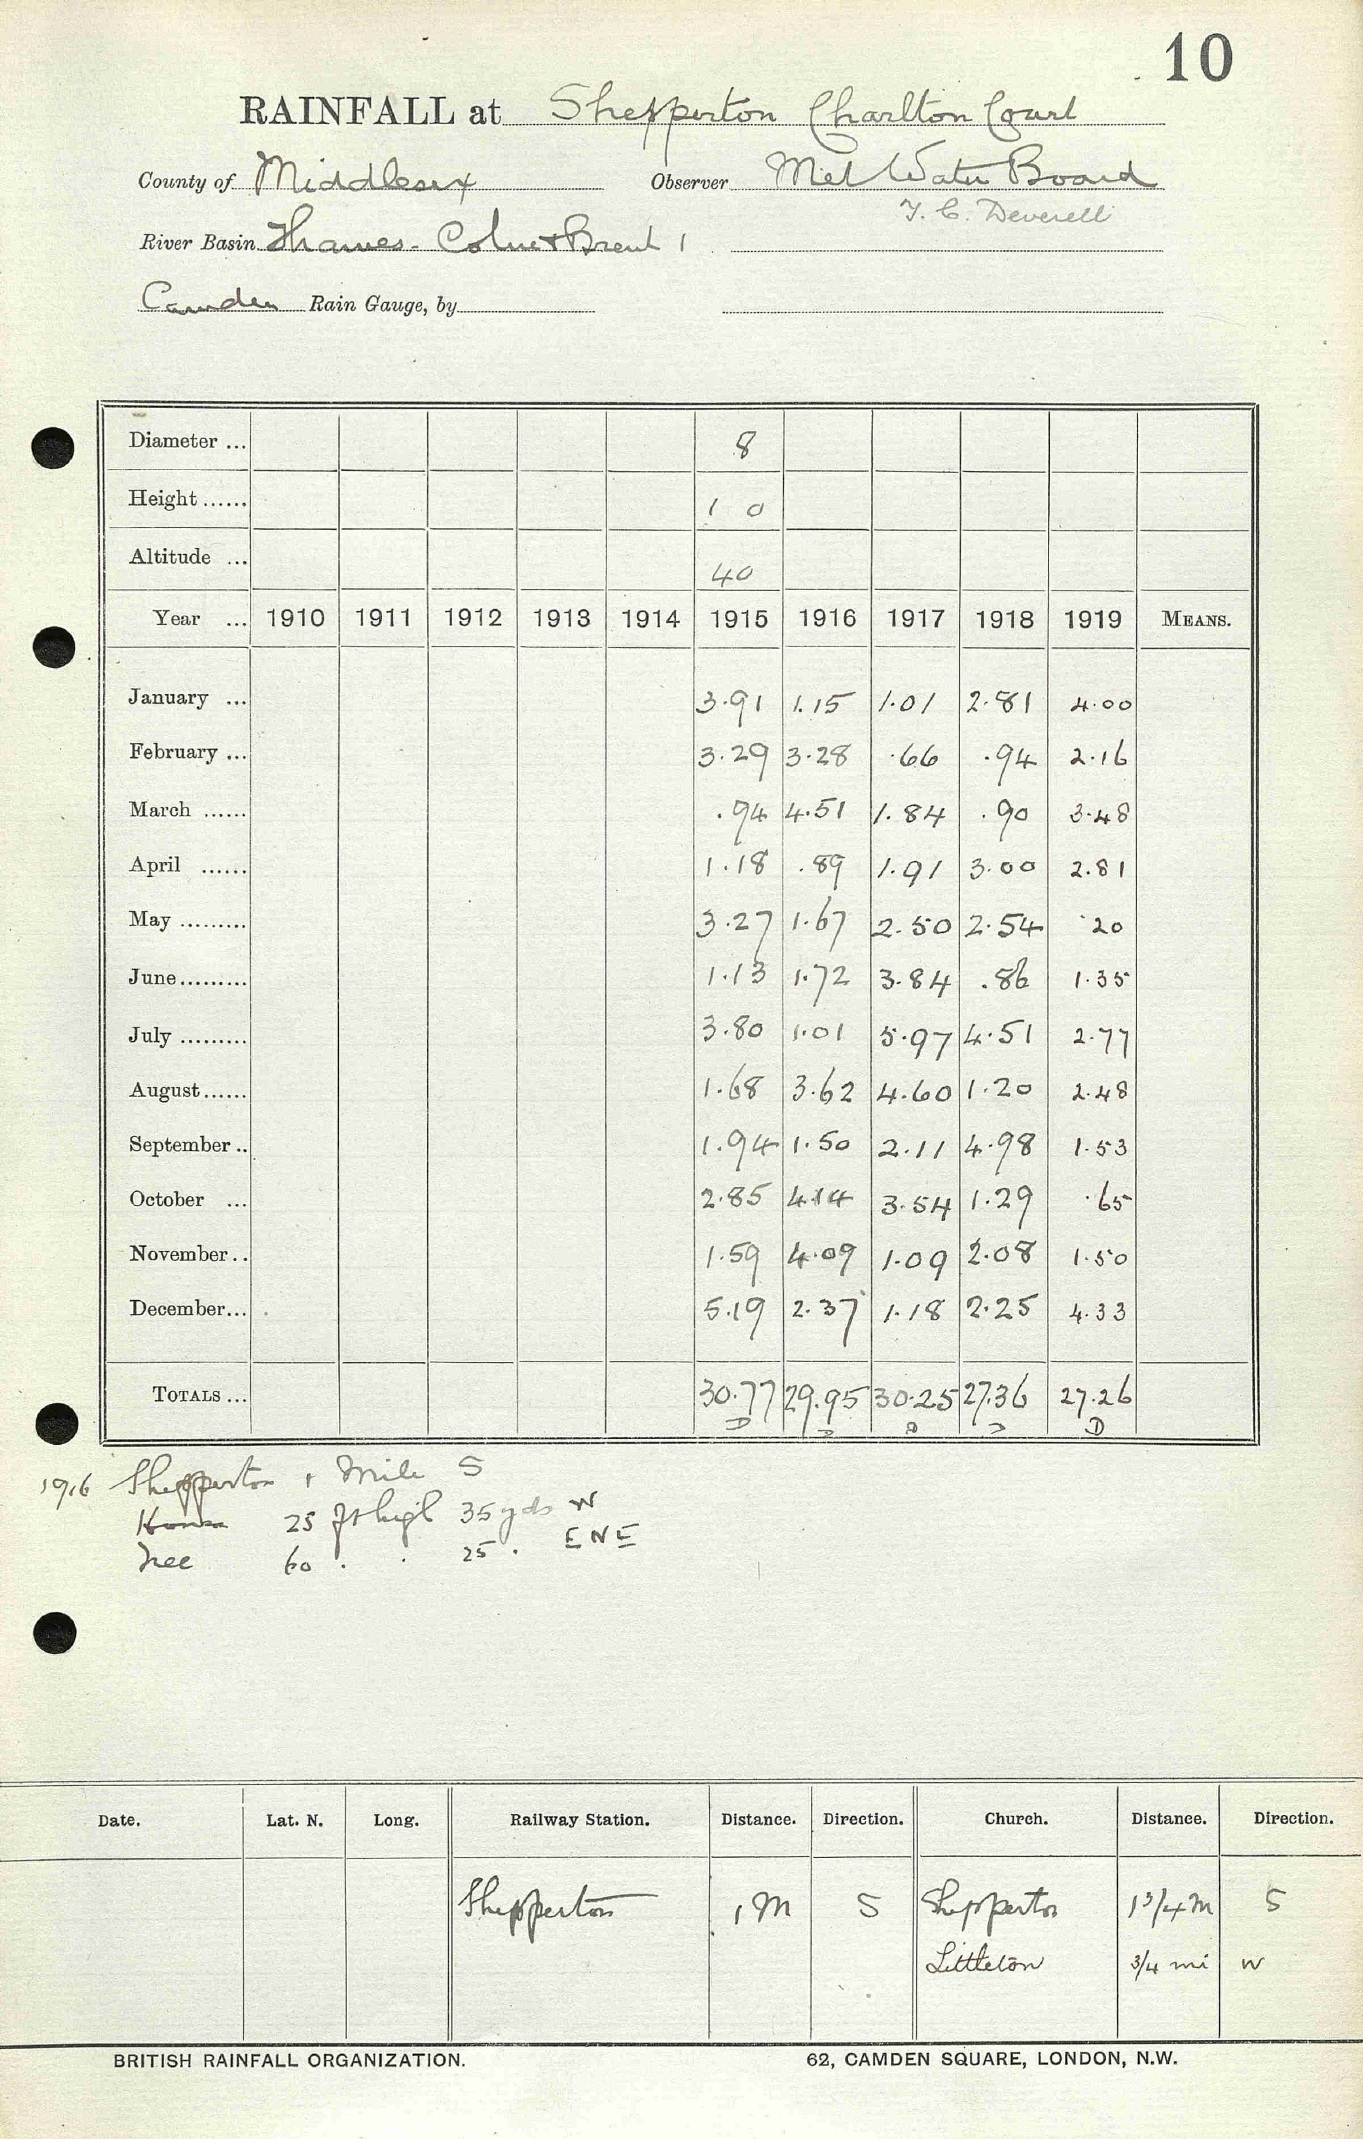 10
RAINFALL at Shepperton Charlton Court
County of Middlesex Observer Met Water Board
T. C. Deverell
River Basin Thames. Colne & Brent 1
Camden Rain Gauge, by
Diameter ... 8
Height ...... 1 0
Altitude ... 40
Year ... 1910 1911 1912 1913 1914 1915 1916 1917 1918 1919 MEANS.
January ... 3.91 1.15 1.01 2.81 4.00
February ... 3.29 3.28 .66 .94 2.16
March ...... .94 4.51 1.84 .90 3.48
April ...... 1.18 .89 1.91 3.00 2.81
May ......... 3.27 1.67 2.50 2.54 .20
June ......... 1.13 1.72 3.84 .86 1.35
July ......... 3.80 1.01 5.97 4.51 2.77
August ...... 1.68 3.62 4.60 1.20 2.48
September .. 1.94 1.50 2.11 4.98 1.53
October ... 2.85 4.14 3.54 1.29 .65
November .. 1.59 4.09 1.09 2.08 1.50
December... 5.19 2.37 1.18 2.25 4.33
TOTALS ... 30.77 29.95 30.25 27.36 27.26
D D D D D
1916 Shepperton 1 Mile S
House 25 ft high 35 yds W
Tree 60 . . 25 . ENE
Date. Lat. N. Long. Railway Station. Distance. Direction. Church. Distance. Direction.
Shepperton 1 M S Shepperton 1 3/4 M S
Littleton 3/4 mi W
BRITISH RAINFALL ORGANIZATION. 62, CAMDEN SQUARE, LONDON, N.W.